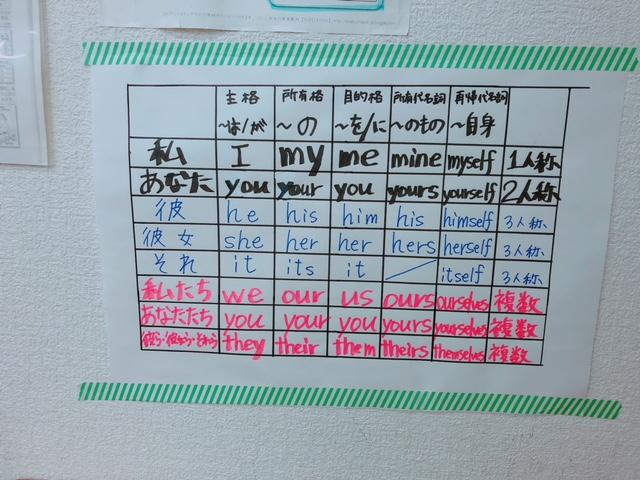 主格 所有格 目的格 所有代名詞 再帰代名詞
～は/が ～の ～を/に ～のもの ～自身
私 I my me mine myself 1人称
あなた you your you yours yourself 2人称
彼 he his him his himself 3人称
彼女 she her her hers herself 3人称
それ it its it itself 3人称
私たち we our us ours ourselves 複数
あなたたち you your you yours yourselves 複数
彼ら・彼女ら・それら they their them theirs themselves 複数